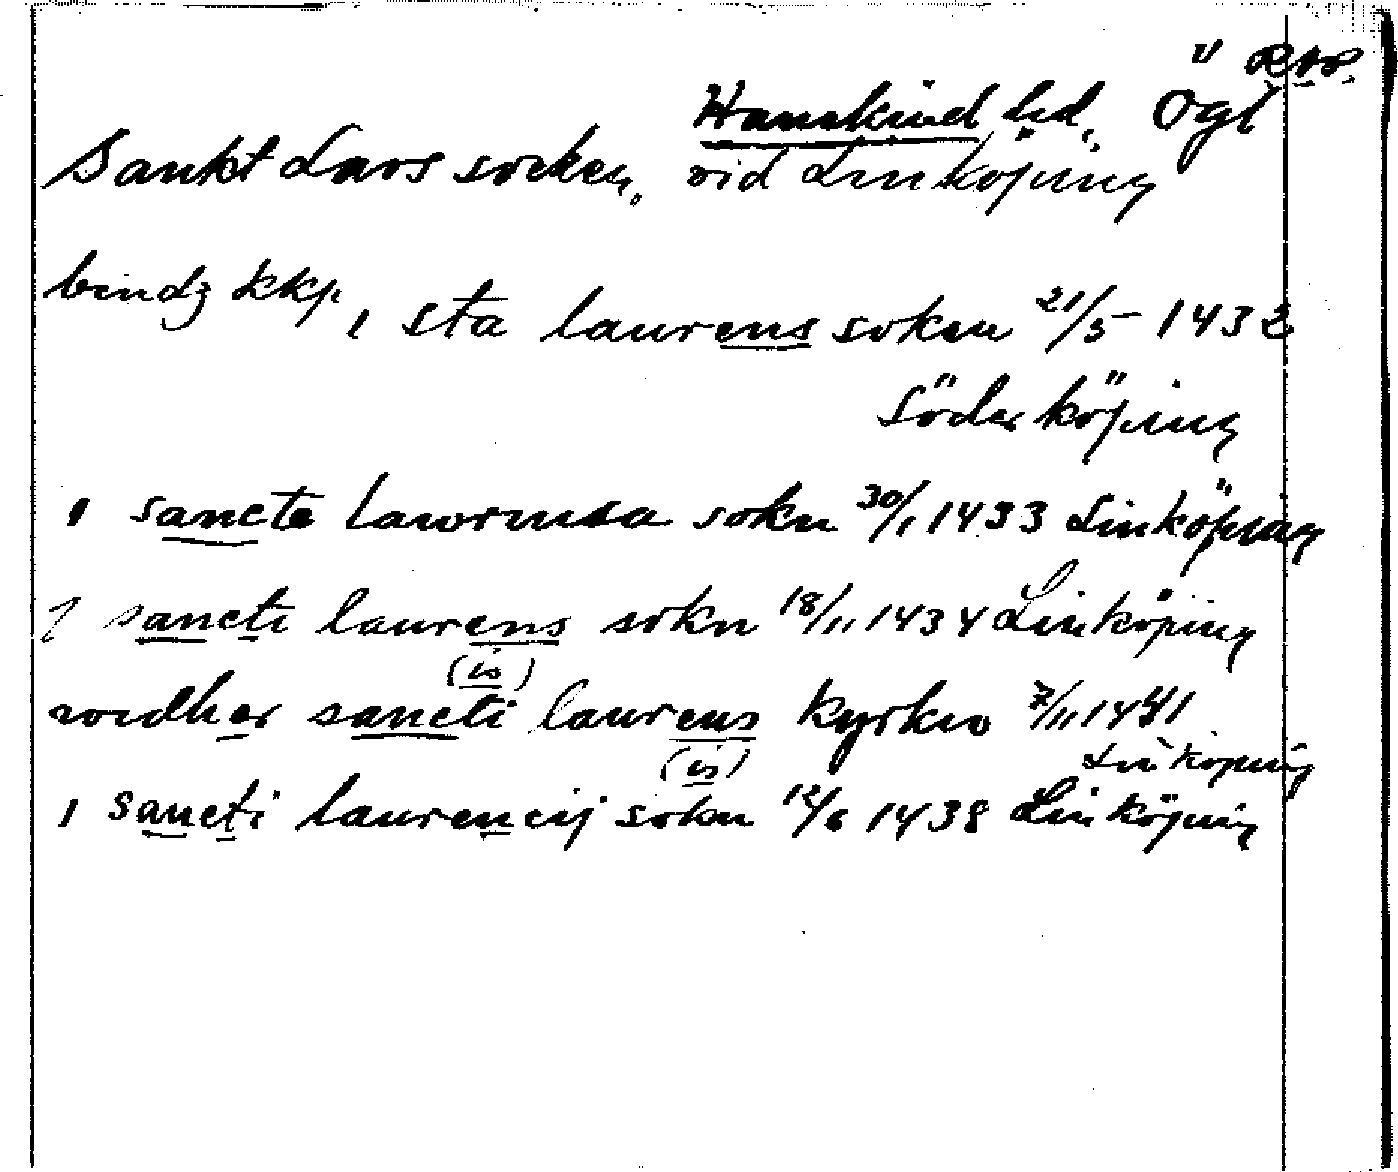 RAP.
Hanekind hd. Ögl
Sankt Lars socken. vid Linköping
bindz kkp, i sta laurens sokn 21/5 1432
Söderköping
i sancte laurinsa sokn 30/1 1433 Linköping
j sancti laurens sokn 18/11 1434 Linköping
(is)
widher sancti laurens kyrkio 7/11 1441
(is) Linköping
i sancti laurencij sokn 12/6 1438 Linköping